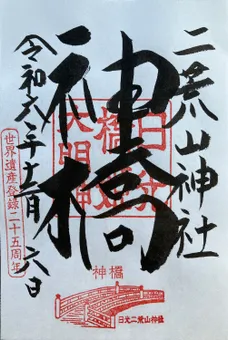 二荒山神社
神橋
令和六年
六日
世界遺産登録二十五周年
大明神
神橋
日光二荒山神社